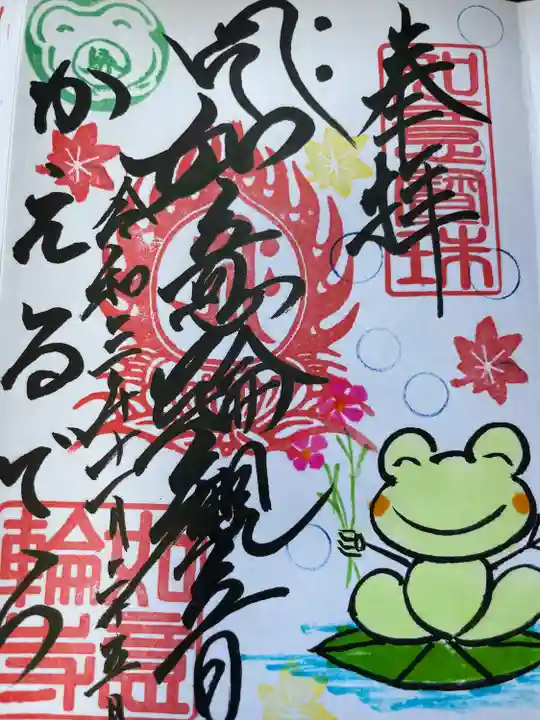 奉拝
如意宝珠
如意輪観音
令和三年十一月二十五日
かえるでら
如意輪寺